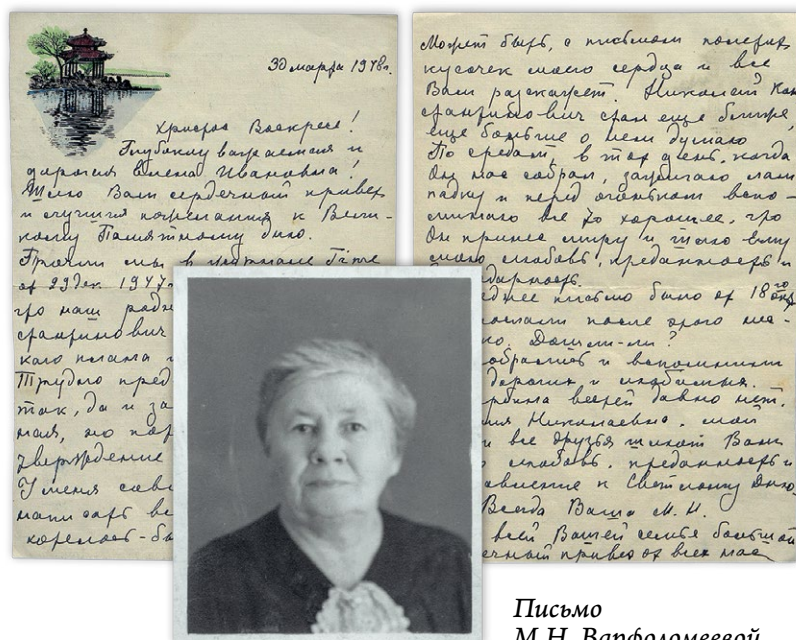 30 марта 1948г.
Христос Воскресе!
Глубоко уважаемая и
дорогая Елена Ивановна!
Шлю Вам сердечный привет
и лучшия пожелания к Вели-
кому Памятному дню.
Прочли мы в журнале Time
от 29 дек. 1947г
что наш родн
стантинович
кого плана
Трудно пред
так, да и за
мая, но пор
тверждение
У меня
написать вс
хотелось-бы
Может быть, с письмом полетит
кусочек моего сердца и все
Вам разскажет. Николай Кон
стантинович стал еще ближе,
еще больше о нем думаю
По средам, в тот день, когда
Он нас собрал, зажигаю лам
падку и перед огоньком вспо-
минаю все то хорошее, что
Он принес миру и шлю ему
мою любовь, преданность и
дарность.
еднее письмо было от 18го
послали после этого
но. Дошли-ли?
обрались и вспоминали
дорогих и любимых.
вестей давно нет.
ия Николаевна, мои
и все друзья шлют Вам
любовь, преданность и
авление к Светлому Дню
Всегда Ваша М. Н.
всей Вашей семье большой
ечный привет от всех нас
Письмо
М.Н. Варфоломеевой